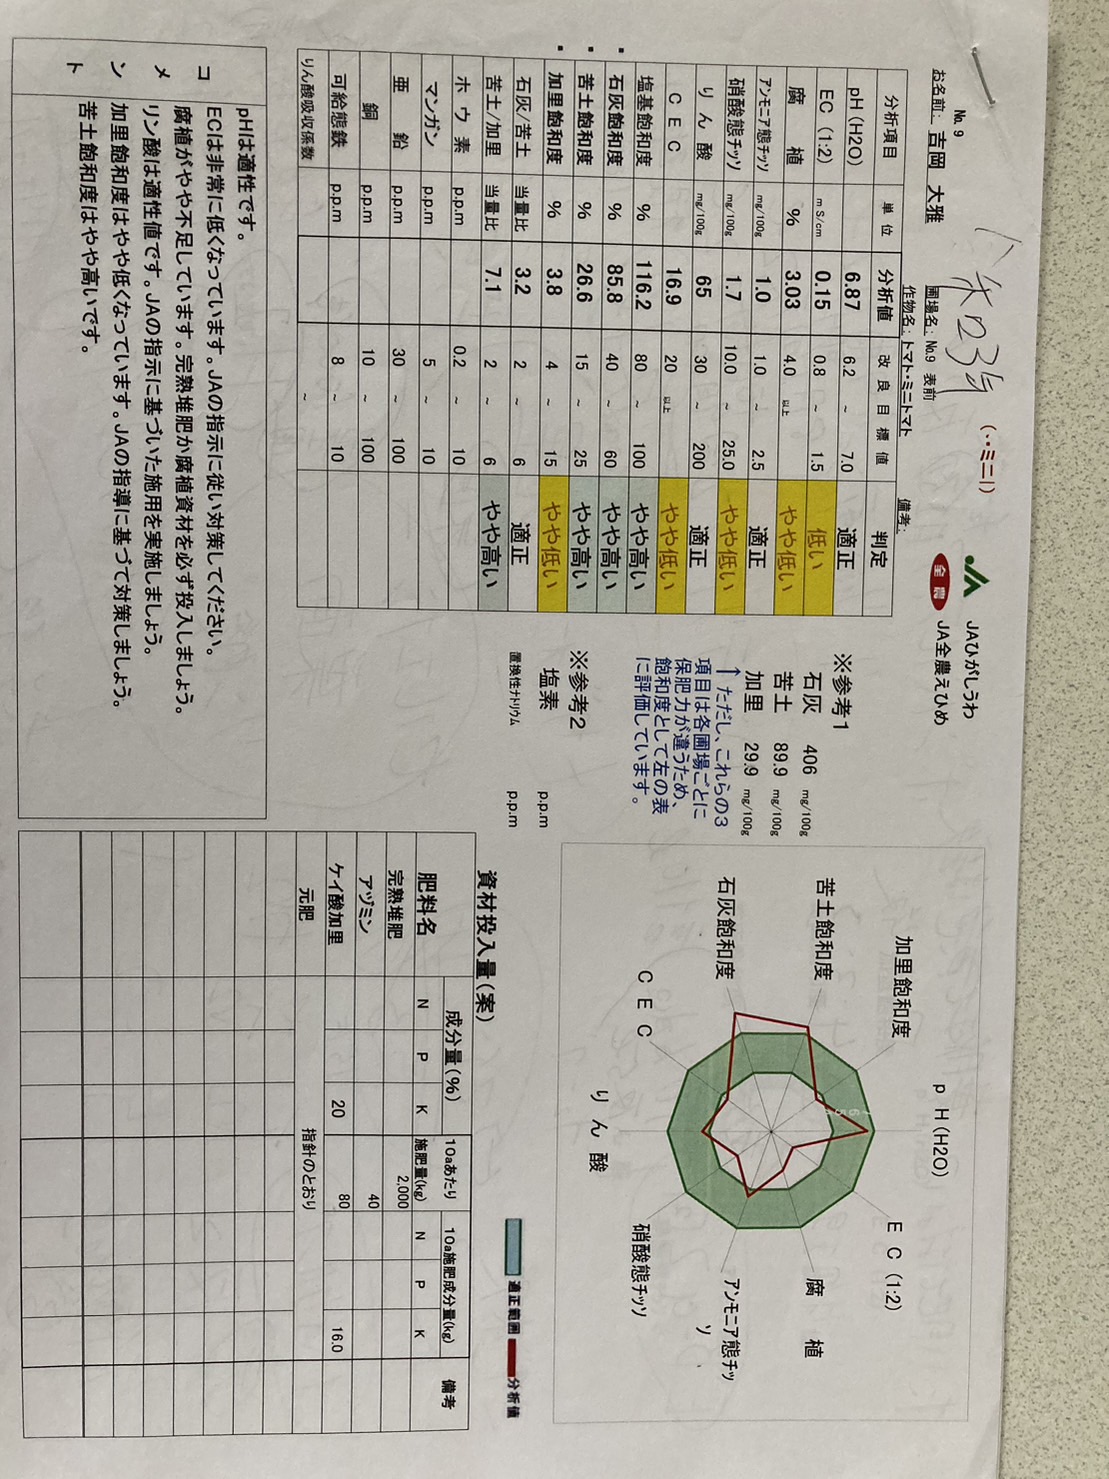 No. 9
お名前: 吉岡 大雅
圃場名: No.9 表前
作物名: トマト・ミニトマト
備考:
JAひがしうわ
全農 JA全農えひめ
分析項目 単位 分析値 改良目標値 判定
pH (H2O) 6.87 6.2 ~ 7.0 適正
EC (1:2) mS/cm 0.15 0.8 ~ 1.5 低い
腐植 % 3.03 4.0 以上 やや低い
アンモニア態チッソ mg/100g 1.0 1.0 ~ 2.5 適正
硝酸態チッソ mg/100g 1.7 10.0 ~ 25.0 やや低い
りん酸 mg/100g 65 30 ~ 200 適正
CEC 16.9 20 以上 やや低い
塩基飽和度 % 116.2 80 ~ 100 やや高い
石灰飽和度 % 85.8 40 ~ 60 やや高い
苦土飽和度 % 26.6 15 ~ 25 やや高い
加里飽和度 % 3.8 4 ~ 15 やや低い
石灰/苦土 当量比 3.2 2 ~ 6 適正
苦土/加里 当量比 7.1 2 ~ 6 やや高い
ホウ素 p.p.m 0.2 ~ 10
マンガン p.p.m 5 ~ 10
亜鉛 p.p.m 30 ~ 100
銅 p.p.m 10 ~ 100
可給態鉄 p.p.m 8 ~ 10
りん酸吸収係数 ~
※参考1
石灰 406 mg/100g
苦土 89.9 mg/100g
加里 29.9 mg/100g
↑ ただし、これらの3
項目は各圃場ごとに
保肥力が違うため、
飽和度として左の表
に評価しています。
※参考2
塩素 p.p.m
置換性ナトリウム p.p.m
コメント
pHは適性です。
ECは非常に低くなっています。JAの指示に従い対策してください。
腐植がやや不足しています。完熟堆肥か腐植資材を必ず投入しましょう。
リン酸は適性値です。JAの指示に基づいた施用を実施しましょう。
加里飽和度はやや低くなっています。JAの指導に基づて対策しましょう。
苦土飽和度はやや高いです。
pH(H2O)
EC(1:2)
腐植
アンモニア態チッ
ソ
硝酸態チッソ
りん酸
CEC
石灰飽和度
苦土飽和度
加里飽和度
適正範囲 分析値
資材投入量(案)
肥料名 成分量(%) 10aあたり 10a施肥成分量(kg) 備考
N P K 施肥量(kg) N P K
完熟堆肥 2,000
アヅミン 40
ケイ酸加里 20 80 16.0
元肥 指針のとおり